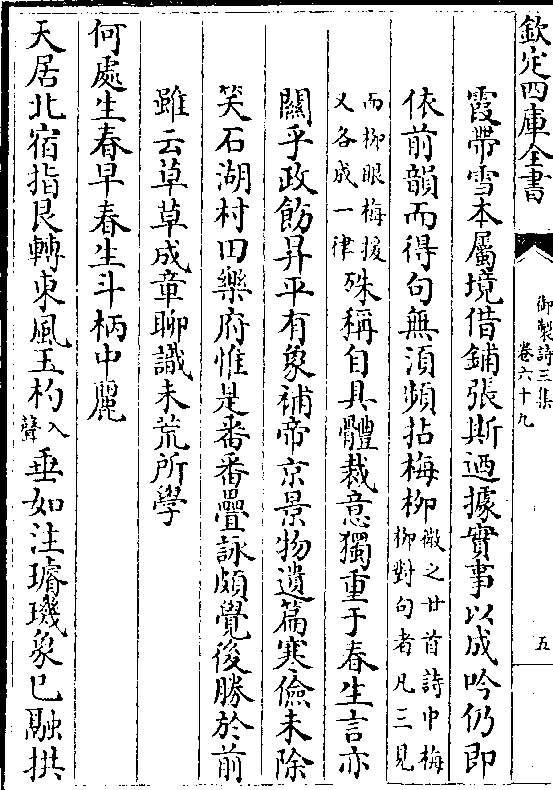 欽定四庫全書
御製詩三集
卷六十九
五
霞帶雪本屬境借鋪張斯迺據實事以成吟仍即
依前韻而得句無須頻拈梅柳微之廿首詩中梅
柳對句者凡三見
而柳眼梅援
又各成一律殊稱自具體裁意獨重于春生言亦
關乎政飭昇平有象補帝京景物遺篇寒儉未除
笑石湖村田樂府惟是番番疊詠頗覺後勝於前
雖云草草成章聊識未荒所學
何處生春早春生斗柄中麗
天居北宿指艮轉東風玉杓入
聲垂如注璿璣象已融拱